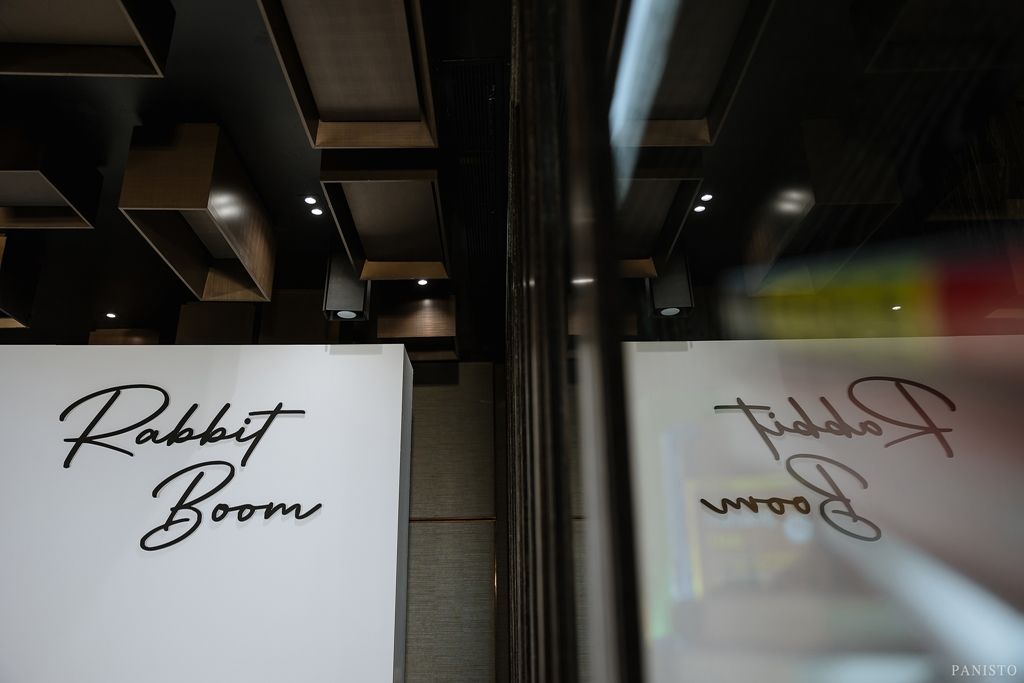 Rabbit
Boom
Rabbit
Boom
PANISTO